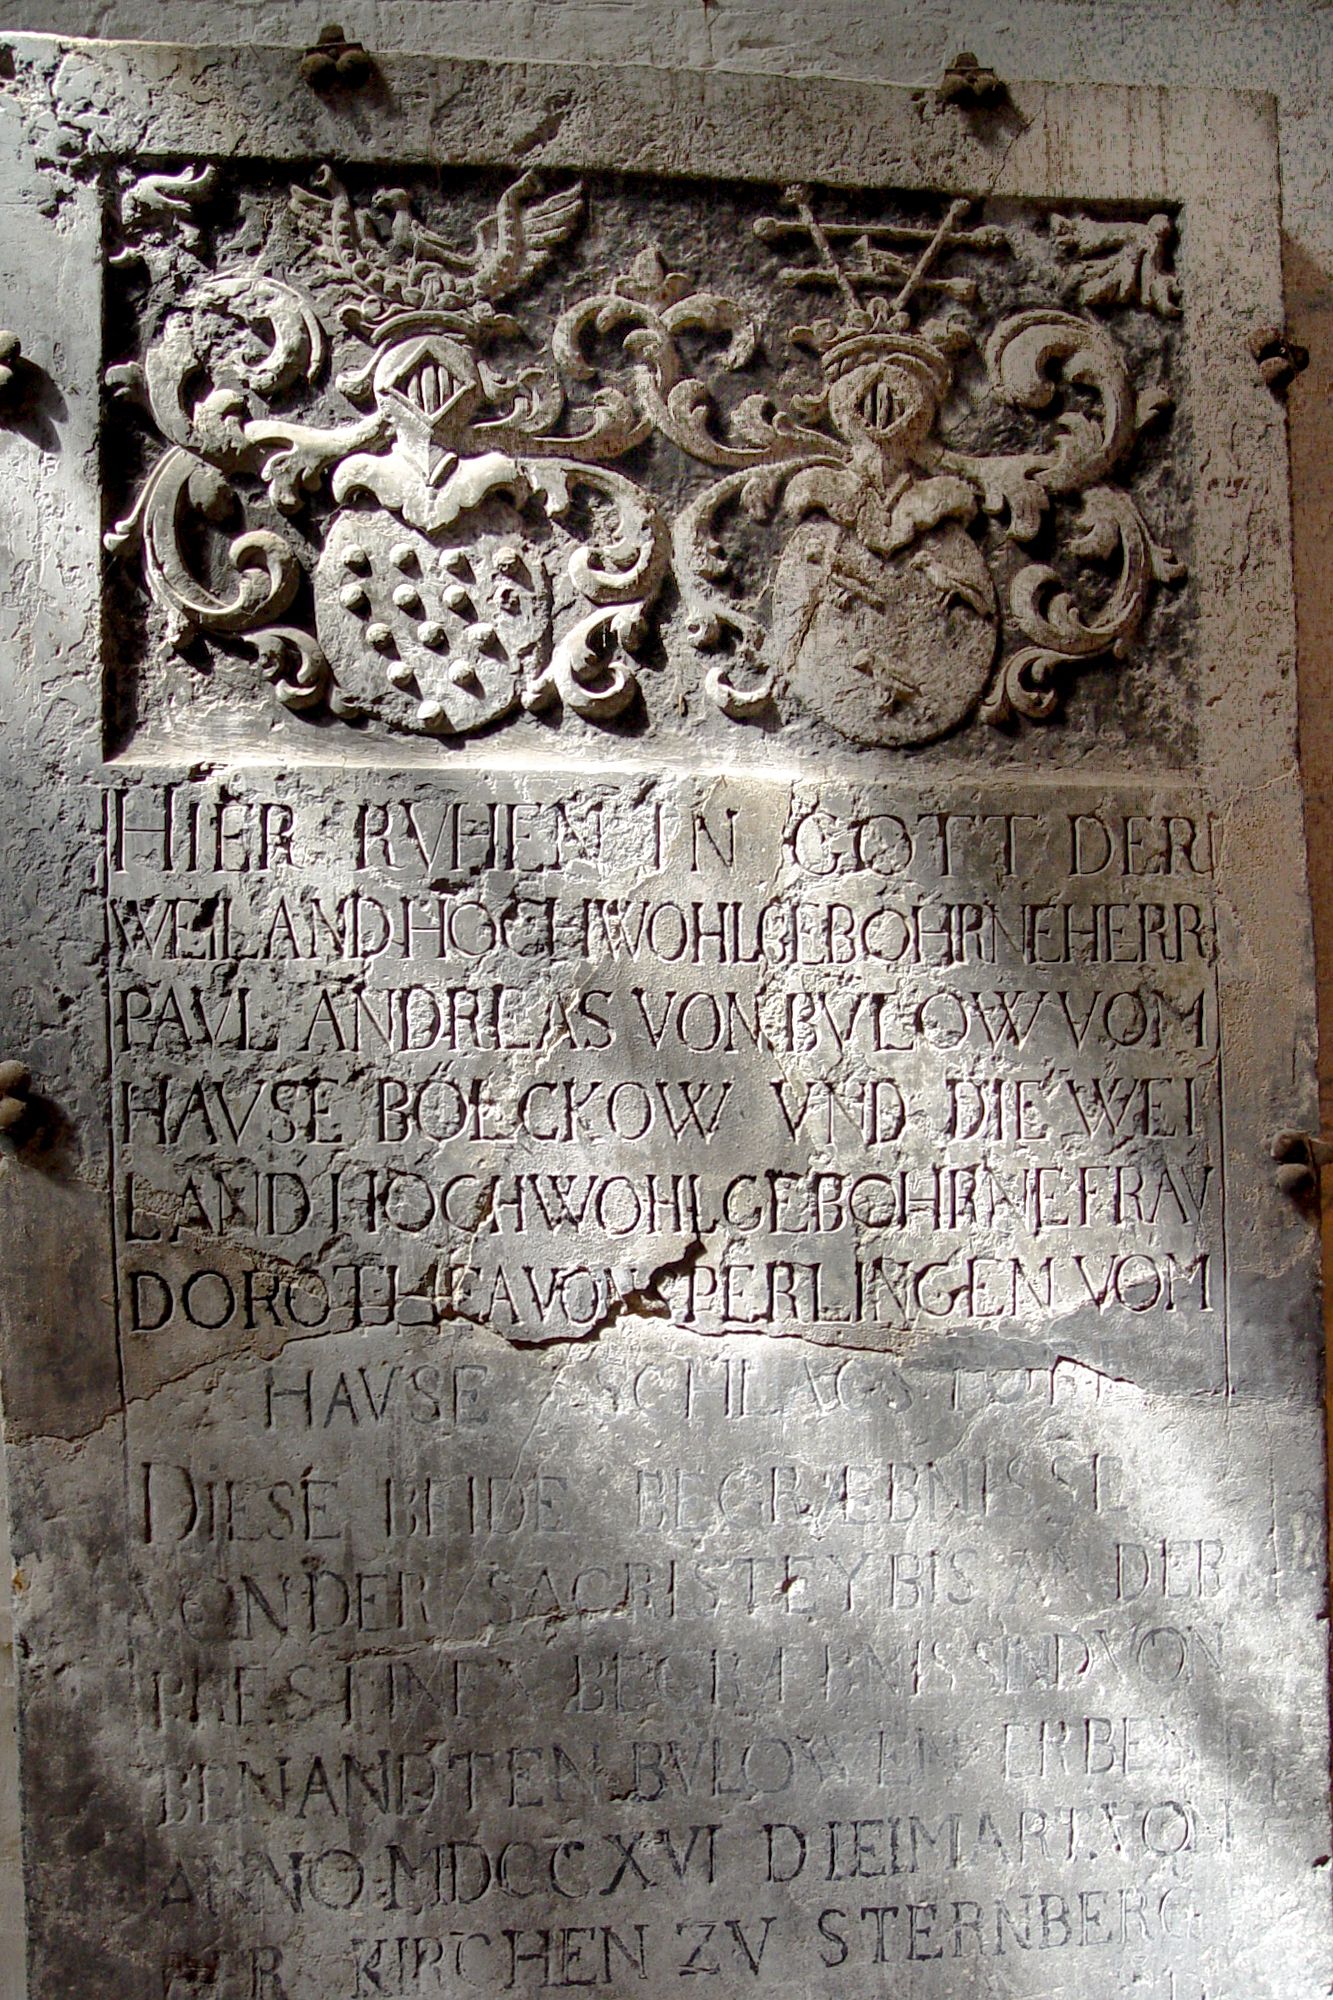 HIER RVHEN IN GOTT DER
WEILAND HOCHWOHLGEBOHRNE HERR
PAVL ANDREAS VON BVLOW VOM
HAVSE BÖLCKOW VND DIE WEI
LAND HOCHWOHLGEBOHRNE FRAV
DOROTHEA VON PERLINGEN VOM
HAVSE ZSCHLAGSTORF
DIESE BEIDE BEGRÆBNISSE
VON DER SACRISTEY BIS AN DER
PRESTINEN BEGRÆBNIS SIND VON
BENANDTEN BVLOWEN ERBEN
ANNO MDCCXVI DIE I MART. VON
DER KIRCHEN ZV STERNBERG